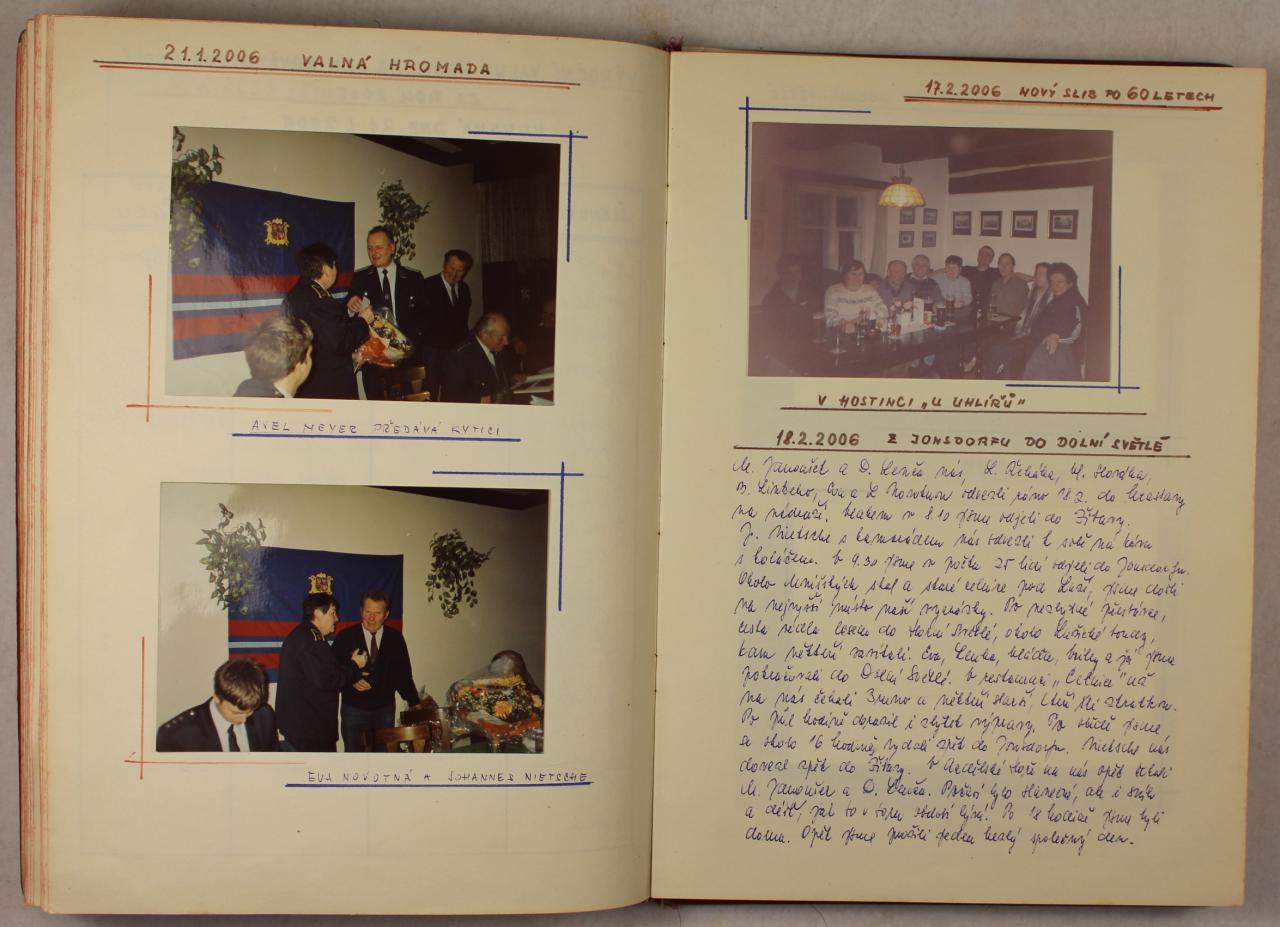 21.1.2006 VALNÁ HROMADA
AXEL MEYER PŘEDÁVÁ KYTICI
EVA NOVOTNÁ A JOHANNES NIETSCHE
17.2.2006 NOVÝ SLIB PO 60 LETECH
V HOSTINCI „U UHLÍŘŮ"
18.2.2006 Z JONSDORFU DO DOLNÍ SVĚTLÉ
M. Janoušek a D. Lenča nás, L. Řeháka, M. Horáka,
B. Eva a L odvezli ráno 18.2. do Hrastavy
na nádraží. Vlakem v 8.10 jsme odjeli do Žitavy.
J. Nietsche s kamarádem nás odvezli k sobě na kávu
s koláčem. V 9.30 jsme v počtu 25 lidí odjeli do Jonsdorfu.
Okolo Mnišských skal a staré celnice pod Luží, jsme došli
na nejvyšší místo naší vycházky. Po nezbytné přestávce,
cesta vedla lesem do Horní Světlé, okolo Lužické boudy,
kam někteří zavítali. Eva, Lenka, Vláďa, a já jsme
pokračovali do Dolní Světlé. V restauraci „Celnice" už
na nás čekali Bruno a někteří starší, kteří šli zkratkou.
Po půl hodině dorazil i zbytek výpravy. Po obědě jsme
se okolo 16 hodiny vydali zpět do Jonsdorfu. Nietsche nás
dovezl zpět do Žitavy. V Andělské Hoře na nás opět čekali
M. Janoušek a D. Lenča. Počasí bylo slunečné, ale i sníh
a déšť, jak to v tomto období bývá. Po 18 hodině jsme byli
doma. Opět jsme prožili jeden hezký společný den.